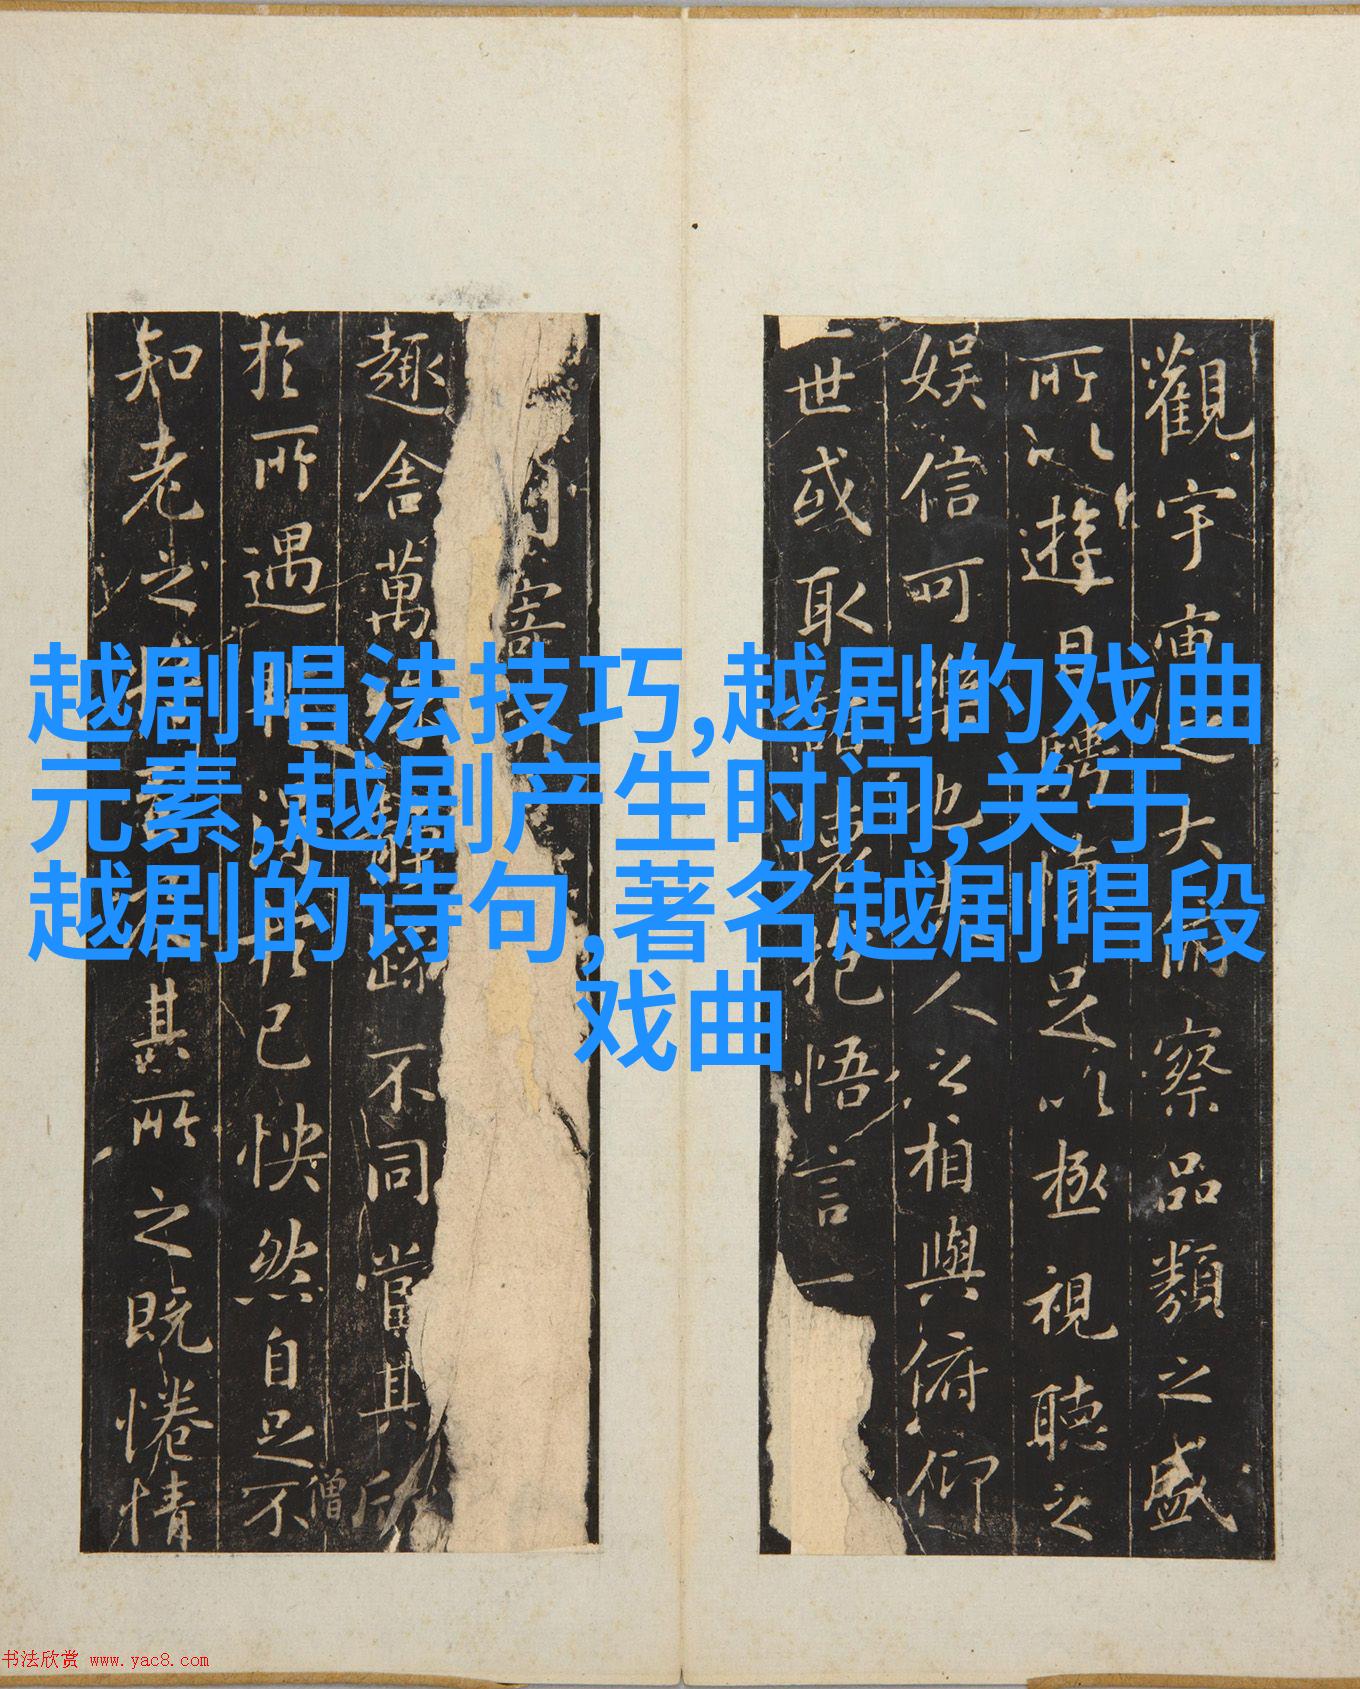 越剧唱法技巧,越剧的戏曲
元素,越剧产生时间,关于
越剧的诗句,著名越剧唱段
戏曲
觀宇宙之大俯察品類之盛
所以遊目騁懷足以極視聽之
娛信可樂也夫人之相與俯仰
一世或取諸懷抱悟言一
寄
趣舍萬殊靜躁不同當其欣
僧
於所遇暫得於己怏然自足不
知老之將至及其所之既惓情
书法欣赏 www.yac8.com